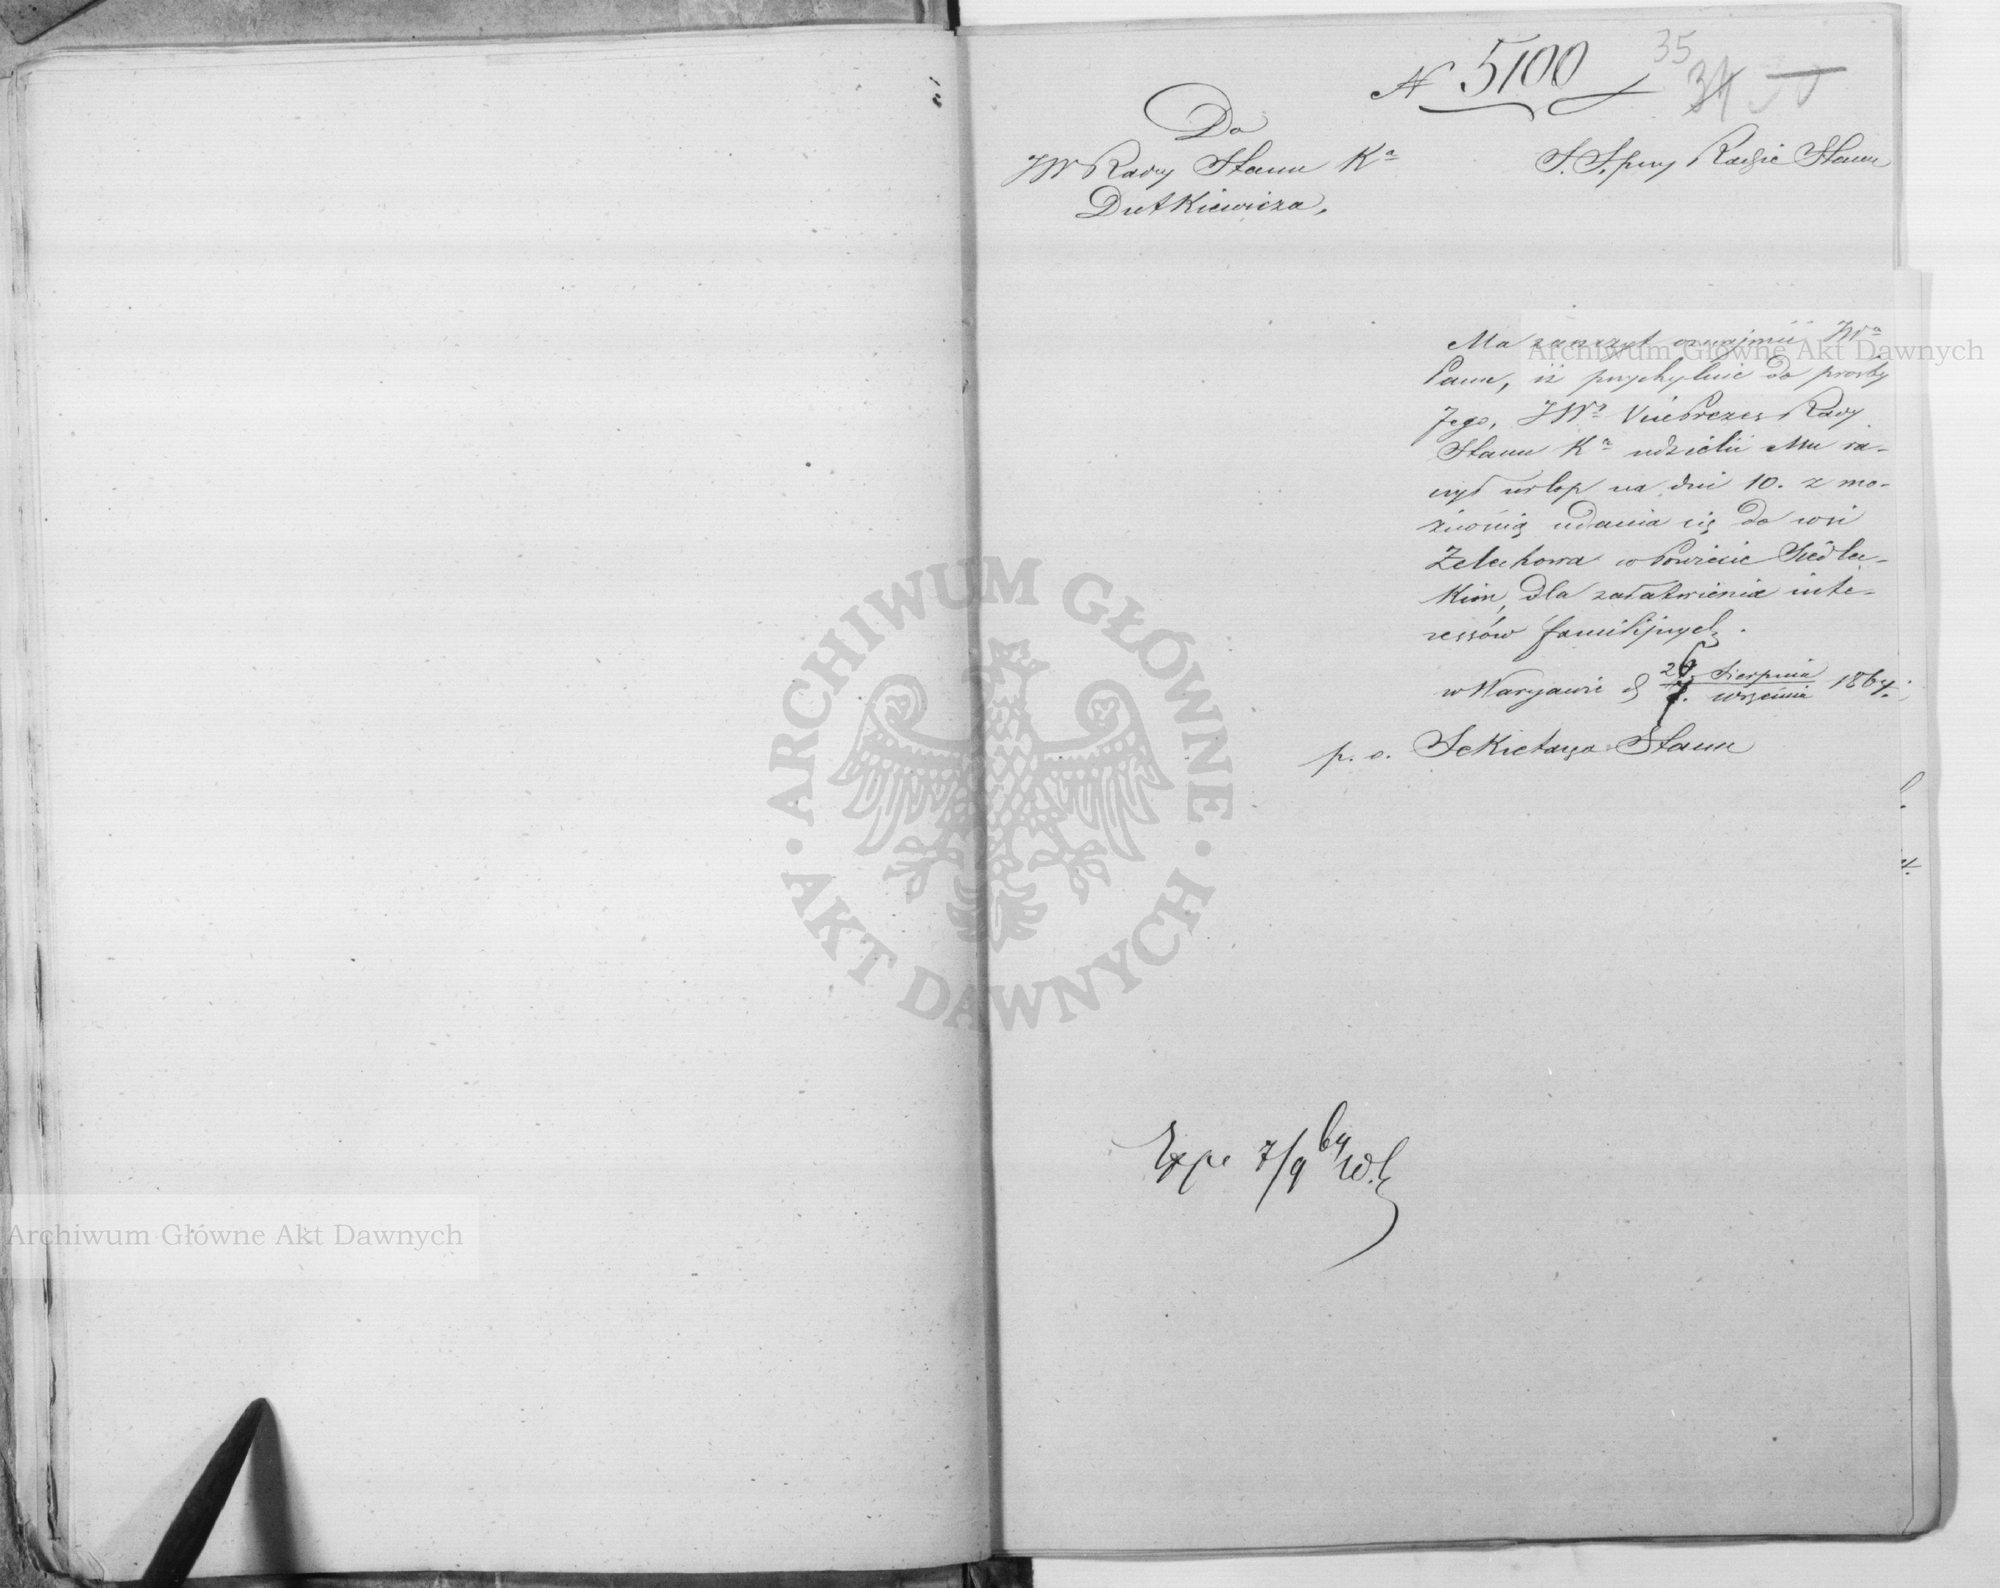 N 5100
35
34
Do
JW Rady Stanu Ka
Dutkiewicza,
S. S. przy Radzie Stanu
Ma zaszczyt oznajmić JWa
Pana, iż przychylnie do prośby
Jego, JWy Vice Prezes Rady
Stanu Ka udzielić Mu ra-
czył urlop na dni 10. z mo-
żnością udania się do wsi
Żelechowa w Powiecie Siedlec-
kim, dla załatwienia inte-
ressów familijnych.
w Warszawie d 26 Sierpnia / 7. Września 1864.
p. o. Sekretarza Stanu
Exp 7/9 64
Archiwum Główne Akt Dawnych
Archiwum Główne Akt Dawnych
ARCHIWUM GŁÓWNE
AKT DAWNYCH